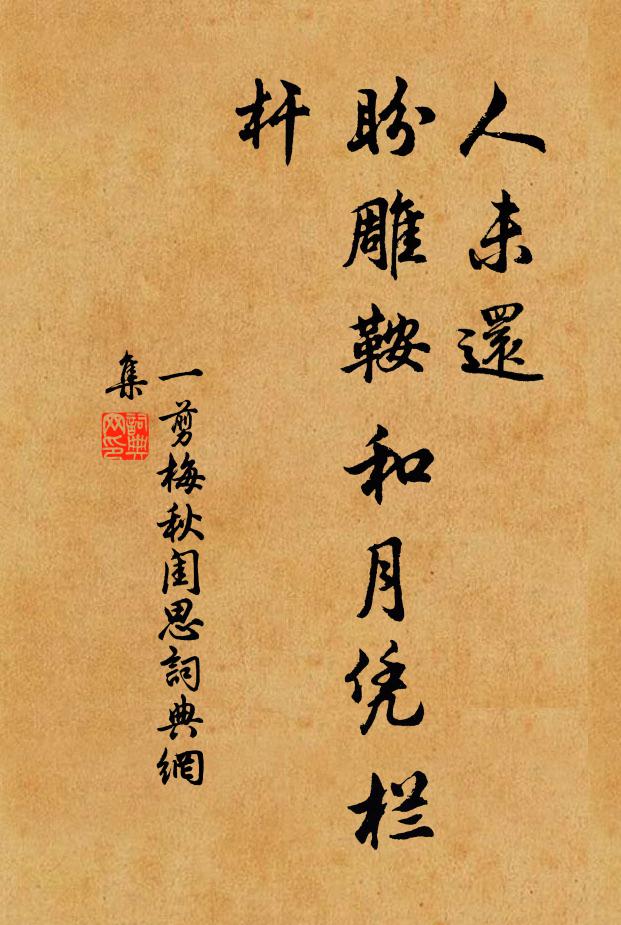 人未還
盼雕鞍和月凭栏
杆
一剪梅秋閨思詞典網
集
詞典
网印